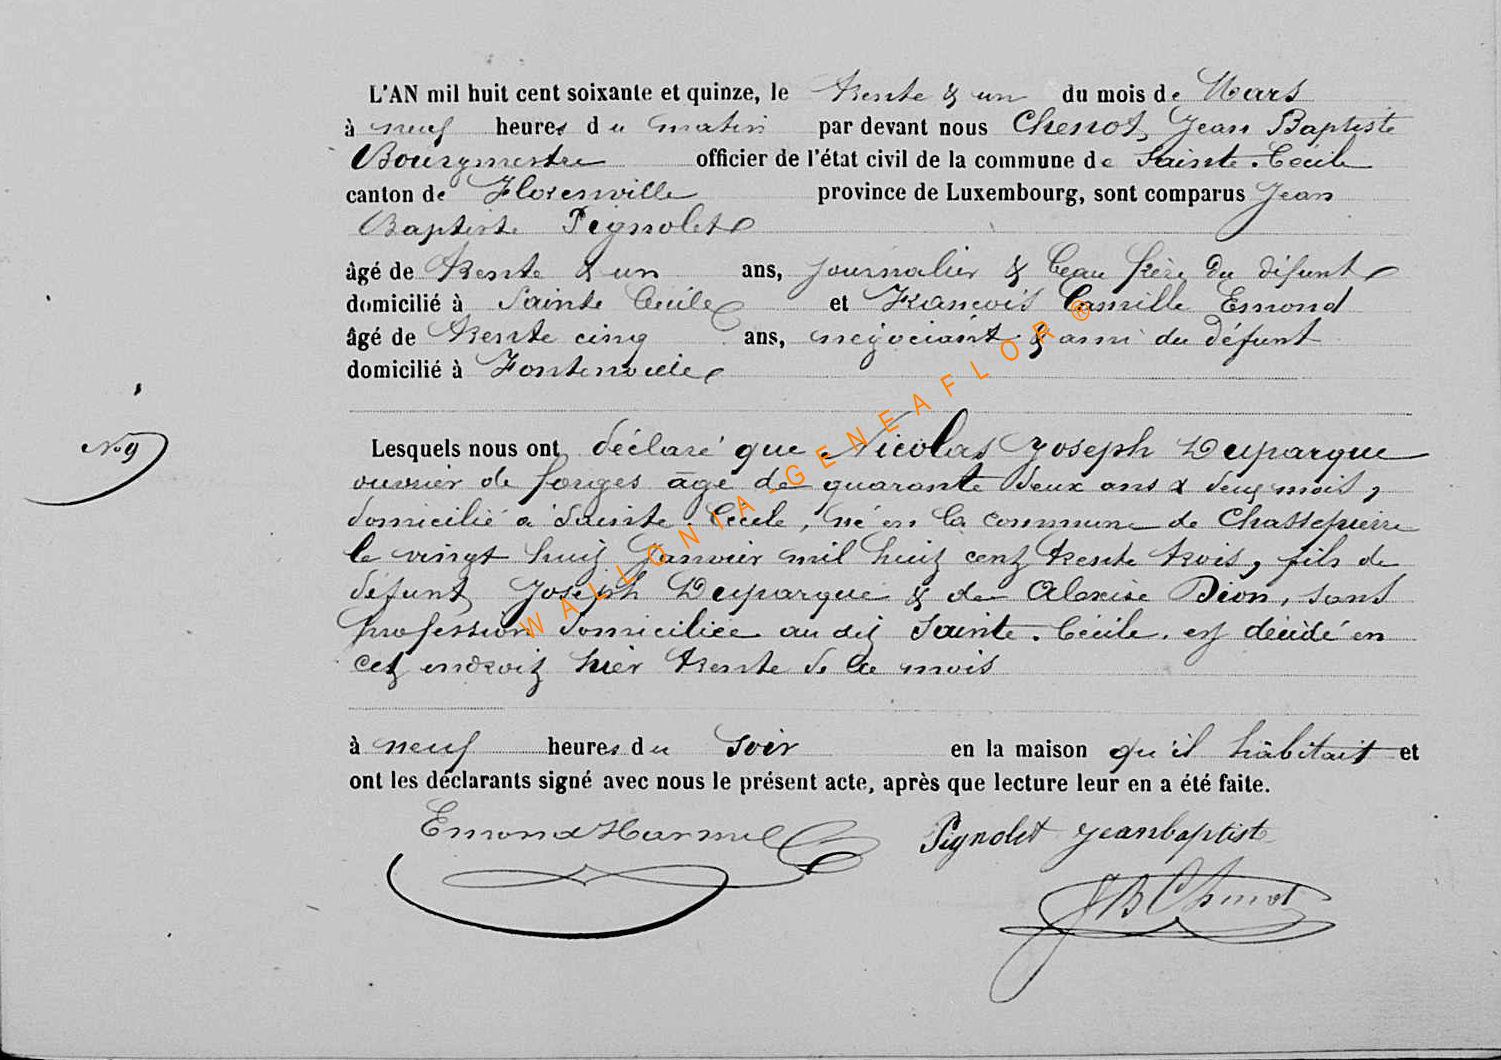 L'AN mil huit cent soixante et quinze, le trente & un du mois de Mars
à neuf heures du matin par devant nous Chenot, Jean Baptiste
Bourgmestre officier de l'état civil de la commune de Sainte-Cécile
canton de Florenville province de Luxembourg, sont comparus Jean
Baptiste Pignolet
âgé de trente & un ans, journalier & beau frère du défunt
domicilié à Sainte Cécile et François Camille Emond
âgé de trente cinq ans, négociant & ami du défunt
domicilié à Fontenoille
No 9
Lesquels nous ont déclaré que Nicolas Joseph Duparque
ouvrier de forges âgé de quarante deux ans & deux mois,
domicilié à Sainte-Cécile, né en la commune de Chassepierre
le vingt huit Janvier mil huit cent trente trois, fils de
défunt Joseph Duparque & de Alexise Dion, sans
profession domiciliée au dit Sainte-Cécile, est décédé en
cet endroit hier trente de ce mois
à neuf heures du soir en la maison qu'il habitait et
ont les déclarants signé avec nous le présent acte, après que lecture leur en a été faite.
Emond Harmel Pignolet jeanbaptiste
JB Chenot
WALLONIA-GENEAFLOR ®